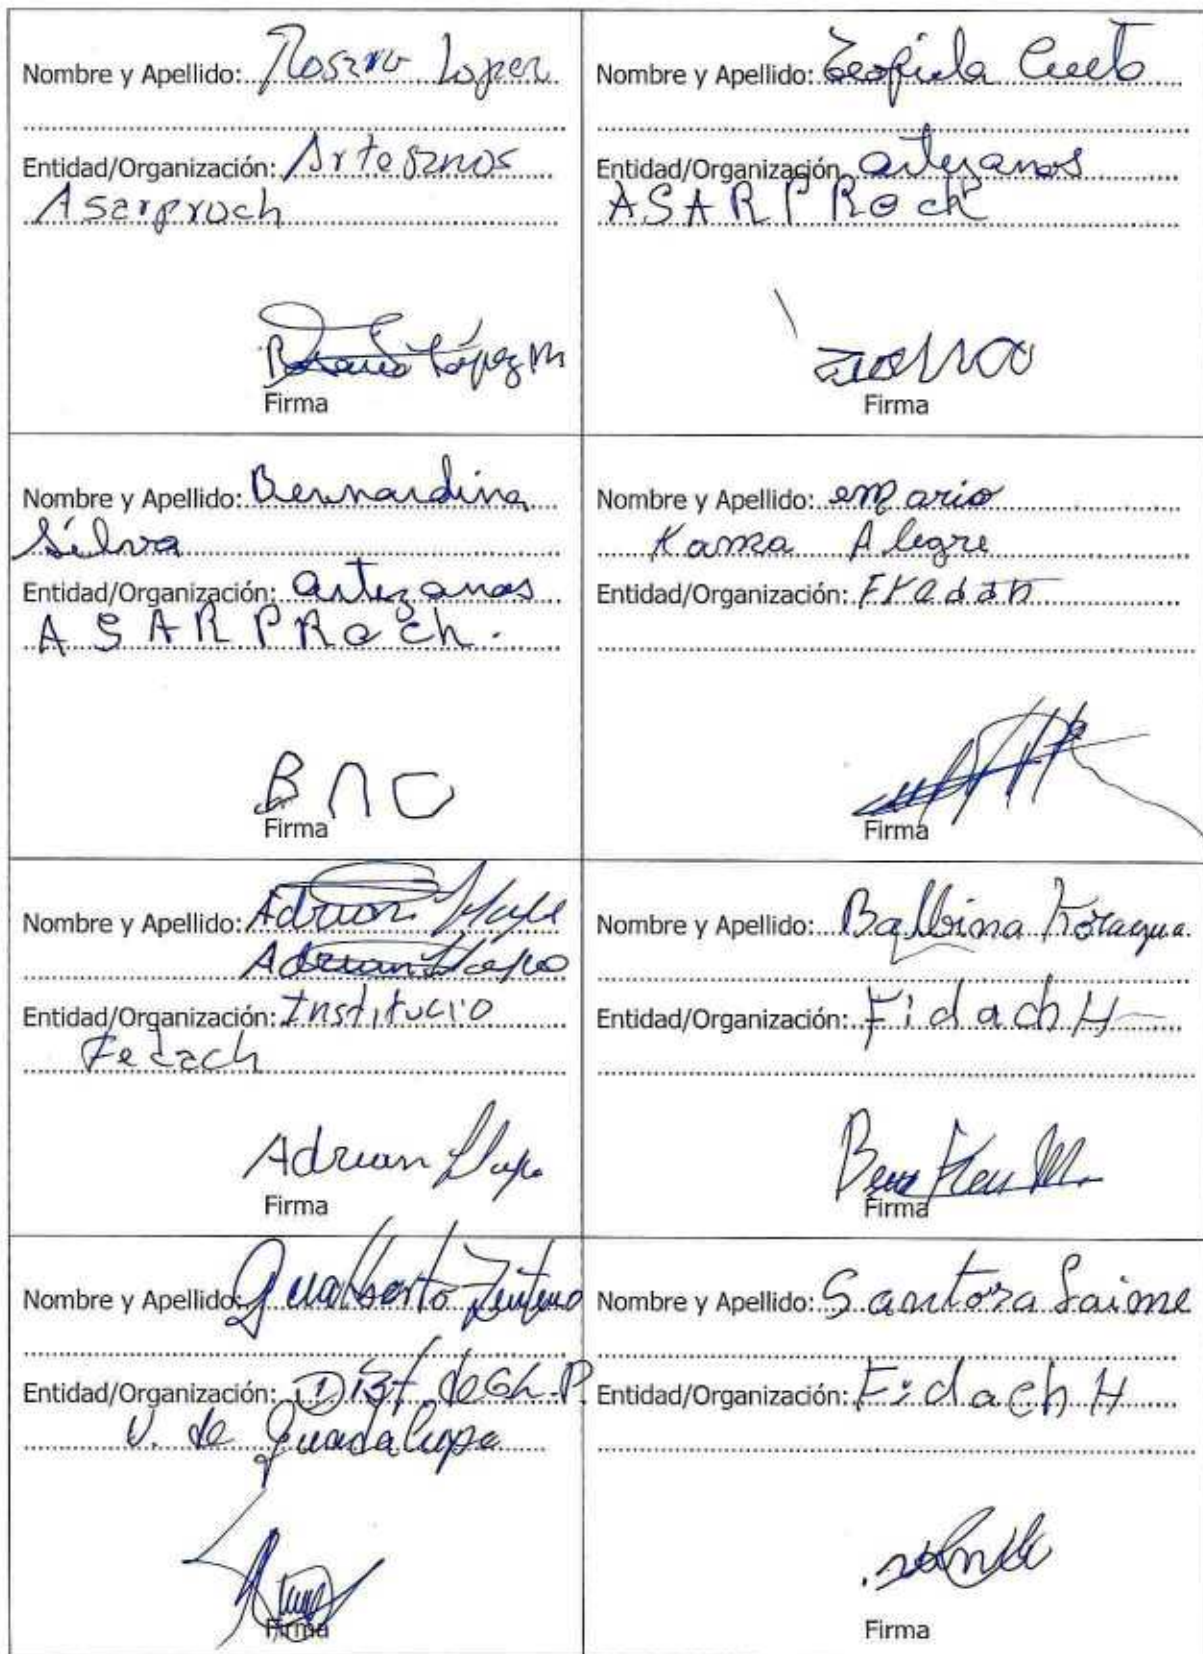 Nombre y Apellido: Rosario Lopez
Entidad/Organización: Artesanos
Asarproch
Rosario López M
Firma
Nombre y Apellido: Zenpida Cueto
Entidad/Organización artezanos
ASARPROch
Firma
Nombre y Apellido: Bernardina
Silva
Entidad/Organización: artezanas
ASARPROch.
Firma
Nombre y Apellido: mario
Kama Alegre
Entidad/Organización:
Firma
Nombre y Apellido: Adrian
Adrian
Entidad/Organización: Institucio
Fedach
Adrian
Firma
Nombre y Apellido: Balbina
Entidad/Organización: FidachH
Firma
Nombre y Apellido: Gualberto Zenteno
Entidad/Organización: Dist. de Ch. P.
V. de Guadalupe
Firma
Nombre y Apellido: Santosa Saime
Entidad/Organización: FidachH
Firma